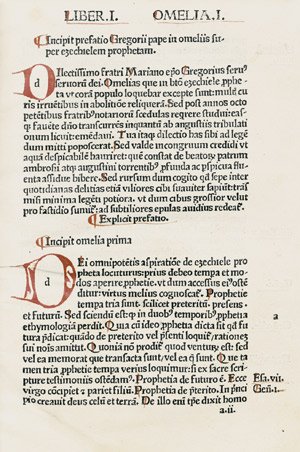 LIBER.I. OMELIA.I.
Incipit prefatio Gregorii pape in omelijs super ezechielem prophetam.
Dilectissimo fratri Mariano ep̃o Gregorius seru⁹
seruorũ dei. Omelias que in btm̃ ezechielẽ ꝓphe
ta vt corã populo loquebar excepte sunt: mult̃ cu
ris irruẽtibus in abolitiõe reliquerã. Sed post annos octo
petẽtibus fratrib⁹ notariorũ scedulas reqrere studui:easq̃
q̃ fauẽte dño transcurrẽs inquantũ ab angustijs tribulati
onum licuit:emẽdaui.
dum mitti poposcerat. Sed valde incongruum credidi vt
aqua despicabilẽ hauriret: que constat de beatoꝝ patrum
ambrosij atq̃ augustini torrentib⁹ ꝓfunda ac ꝑspicua flu-
enta assidue bibere. Sed rursum dum cogito qđ sepe inter
quotidianas delitias etiã viliores cibi suauiter sapiũt:trãs
misi minima legẽti potiora. vt dum cibus grossior velut
pro fastidio sumit᷑: ad subtiliores epulas auidius redeat᷑.
Explicit prefatio.
Incipit omelia prima
Dei omnipotẽtis aspiratiõe de ezechiele pro
pheta locuturus:prius debeo tempa et mo-
dos aperire ꝓphetie. vt dum accessus ei⁹ ostẽ
dit᷑:virtus melius cognoscat᷑. Prophetie
tempa tria sunt: scilicet preteritũ:presens.
et futurũ. Sed sciendũ est:ꝙ in duob⁹ temporib⁹ ꝓphetia
ethymologiã perdit. Quia cũ ideo ꝓphetia dicta sit qđ fu
tura p̃dicat: quãdo de preterito vel p̃senti loquit᷑: rationẽ
sui nois amittit. Quoniã nõ prodit᷑ quod ventuꝝ est: sed
vel ea memorat que transacta sunt: vel ea q̃ sunt. Que ta
men tria ꝓphetie tempa verius loquimur:si ex sacre scri
pture testimonijs ostẽdam⁹. Prophetia de futuro ẽ. Ecce
virgo cõcipiet et pariet filiũ. Prophetia de p̃terito. In p̃nci
pio creauit deus celũ et terrã. De illo eni᷑ tpe dixit homo
a
Esa.vii.
Geñ.i.
a.ii.